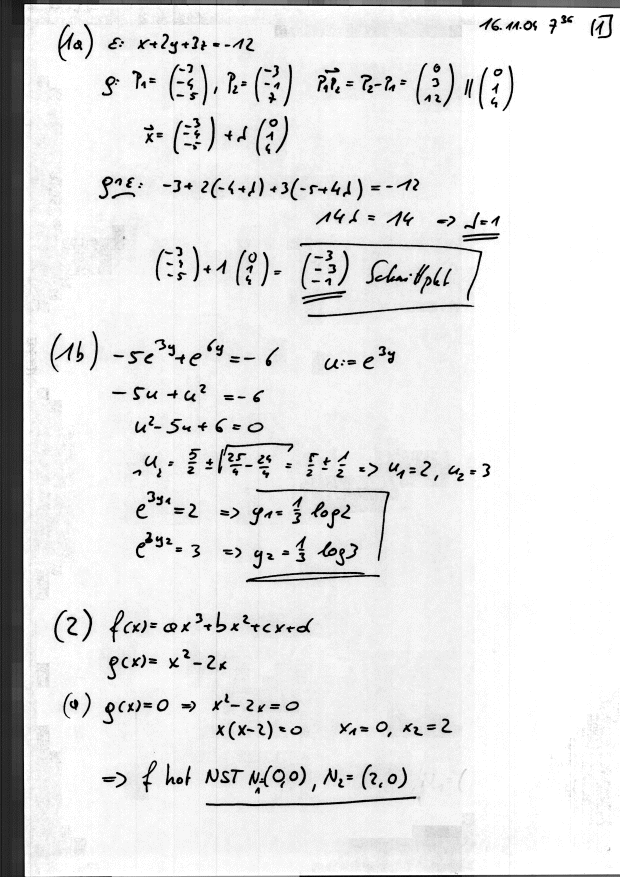 16.11.04 7³⁶ [1]
(1a) ε: x+2y+3z=-12
g: P₁=(-3 -4 -5), P₂=(-3 -1 7) P₁P₂ = P₂-P₁ = (0 3 12) || (0 1 4)
x⃗=(-3 -4 -5)+λ(0 1 4)
g∩ε: -3+2(-4+λ)+3(-5+4λ)=-12
14λ=14 ⇒ λ=1
(-3 -4 -5)+1(0 1 4)=(-3 -3 -1) Schnittpkt
(1b) -5e^{3y}+e^{6y}=-6 u:=e^{3y}
-5u+u²=-6
u²-5u+6=0
₁u₂=5/2±√(25/4-24/4)=5/2±1/2 ⇒ u₁=2, u₂=3
e^{3y₁}=2 ⇒ y₁=1/3 log2
e^{3y₂}=3 ⇒ y₂=1/3 log3
(2) f(x)=ax³+bx²+cx+d
g(x)=x²-2x
(a) g(x)=0 ⇒ x²-2x=0
x(x-2)=0 x₁=0, x₂=2
⇒ f hat NST N₁=(0,0), N₂=(2,0)